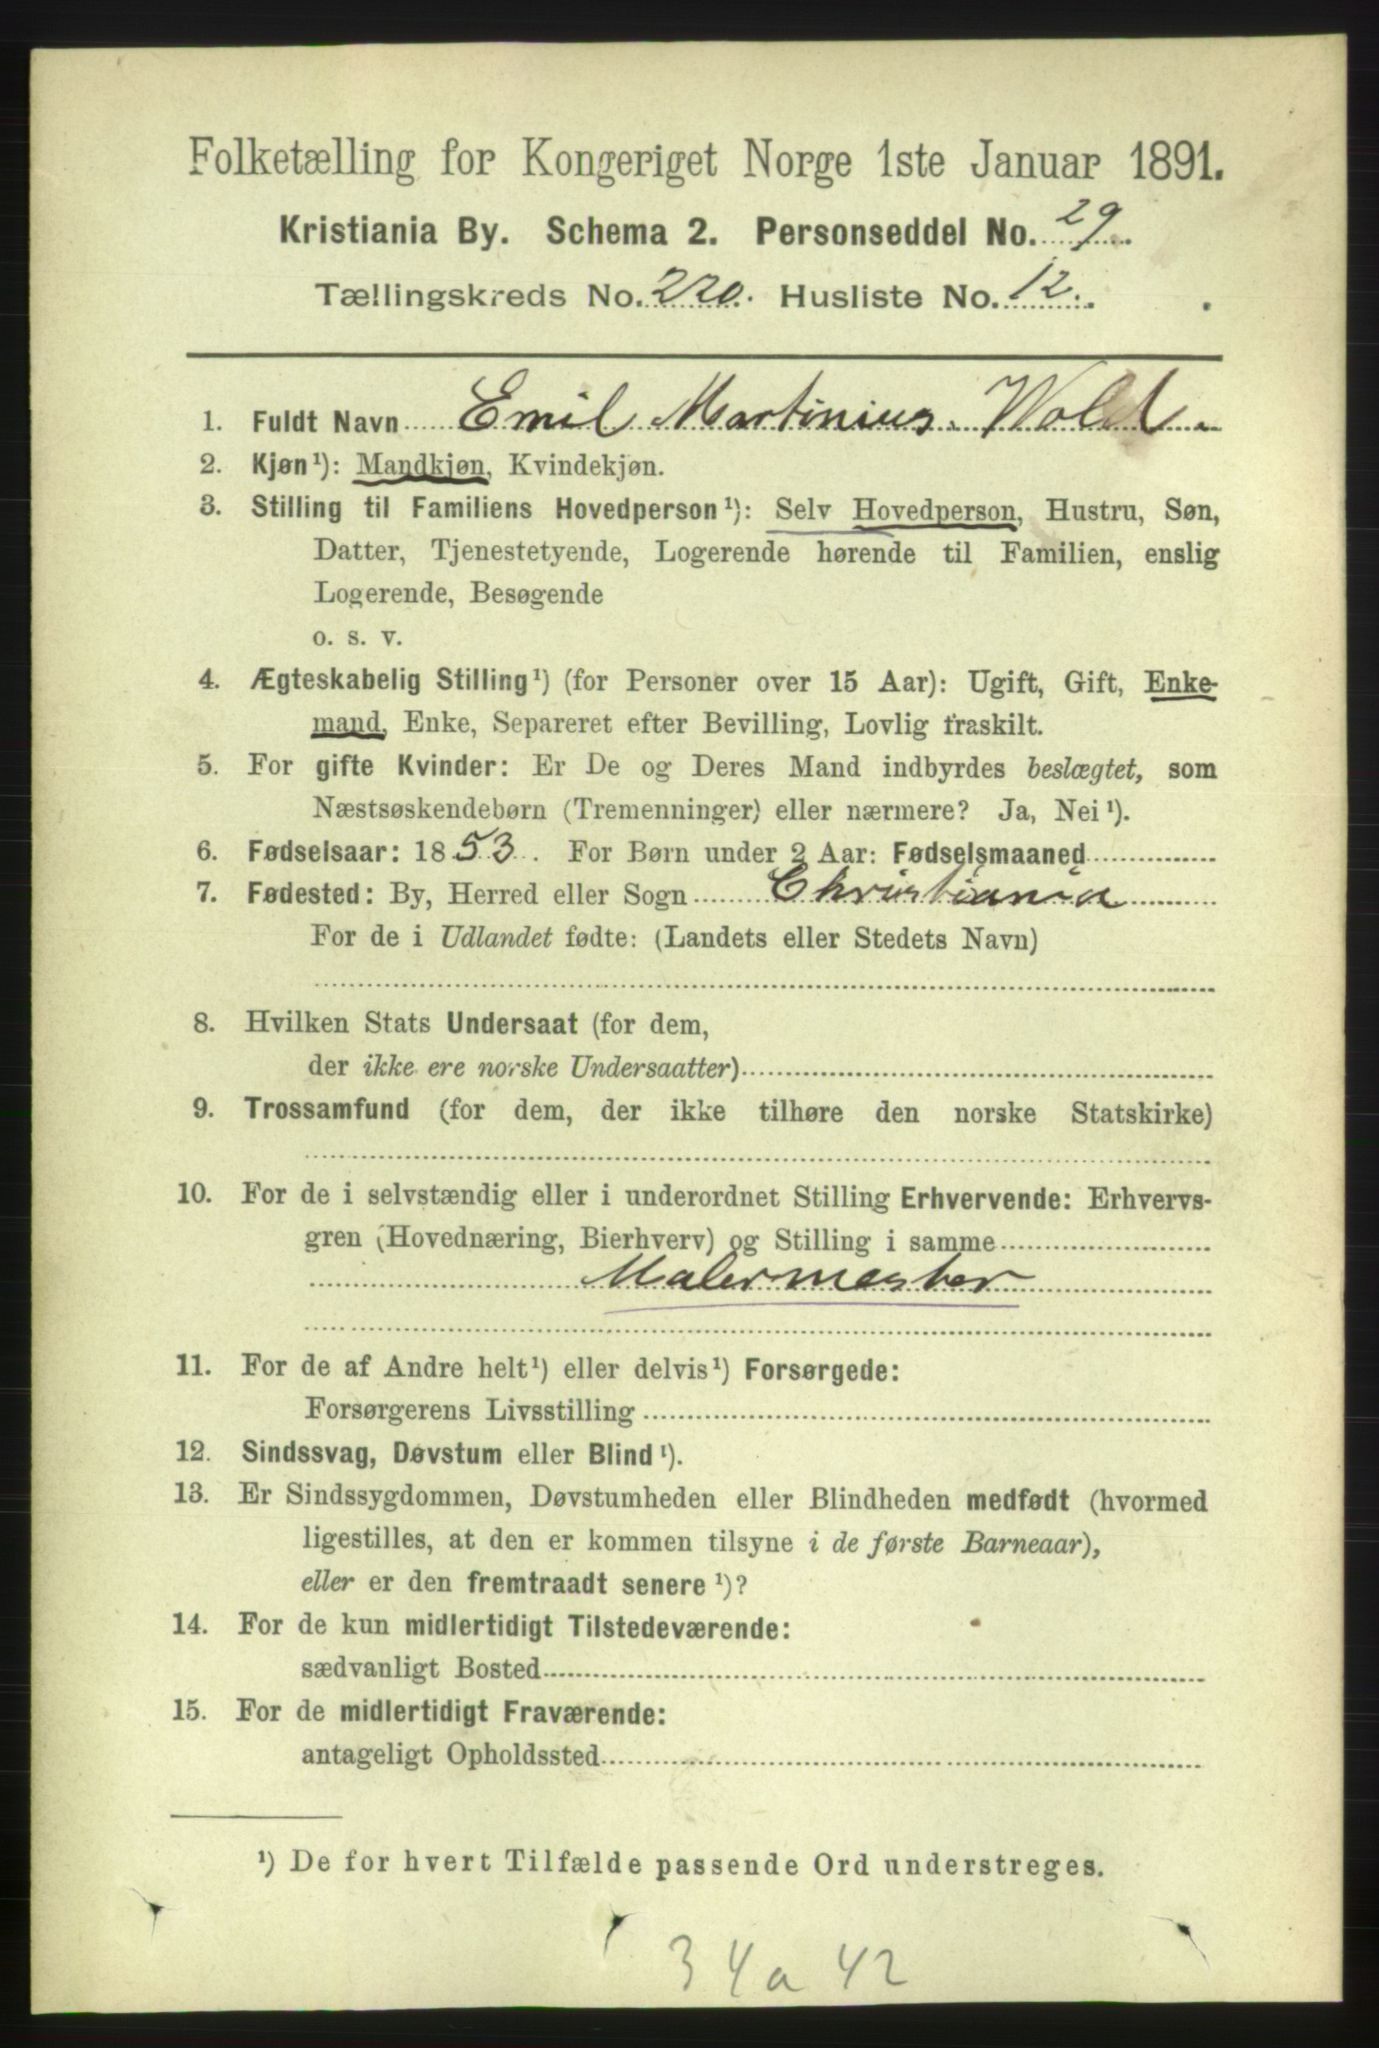 Folketælling for Kongeriget Norge 1ste Januar 1891.
Kristiania By. Schema 2. Personseddel No. 29.
Tællingskreds No. 220. Husliste No. 12.
1. Fuldt Navn Emil Martinius Wold.
2. Kjøn¹): Mandkjøn, Kvindekjøn.
3. Stilling til Familiens Hovedperson¹): Selv Hovedperson, Hustru, Søn,
Datter, Tjenestetyende, Logerende hørende til Familien, enslig
Logerende, Besøgende
o. s. v.
4. Ægteskabelig Stilling¹) (for Personer over 15 Aar): Ugift, Gift, Enke-
mand, Enke, Separeret efter Bevilling, Lovlig fraskilt.
5. For gifte Kvinder: Er De og Deres Mand indbyrdes beslægtet, som
Næstsøskendebørn (Tremenninger) eller nærmere? Ja, Nei¹).
6. Fødselsaar: 1853. For Børn under 2 Aar: Fødselsmaaned
7. Fødested: By, Herred eller Sogn Christiania
For de i Udlandet fødte: (Landets eller Stedets Navn)
8. Hvilken Stats Undersaat (for dem,
der ikke ere norske Undersaatter)
9. Trossamfund (for dem, der ikke tilhøre den norske Statskirke)
10. For de i selvstændig eller i underordnet Stilling Erhvervende: Erhvervs-
gren (Hovednæring, Bierhverv) og Stilling i samme
Malermester
11. For de af Andre helt¹) eller delvis¹) Forsørgede:
Forsørgerens Livsstilling
12. Sindssvag, Døvstum eller Blind¹).
13. Er Sindssygdommen, Døvstumheden eller Blindheden medfødt (hvormed
ligestilles, at den er kommen tilsyne i de første Barneaar),
eller er den fremtraadt senere¹)?
14. For de kun midlertidigt Tilstedeværende:
sædvanligt Bosted
15. For de midlertidigt Fraværende:
antageligt Opholdssted
¹) De for hvert Tilfælde passende Ord understreges.
34a 42